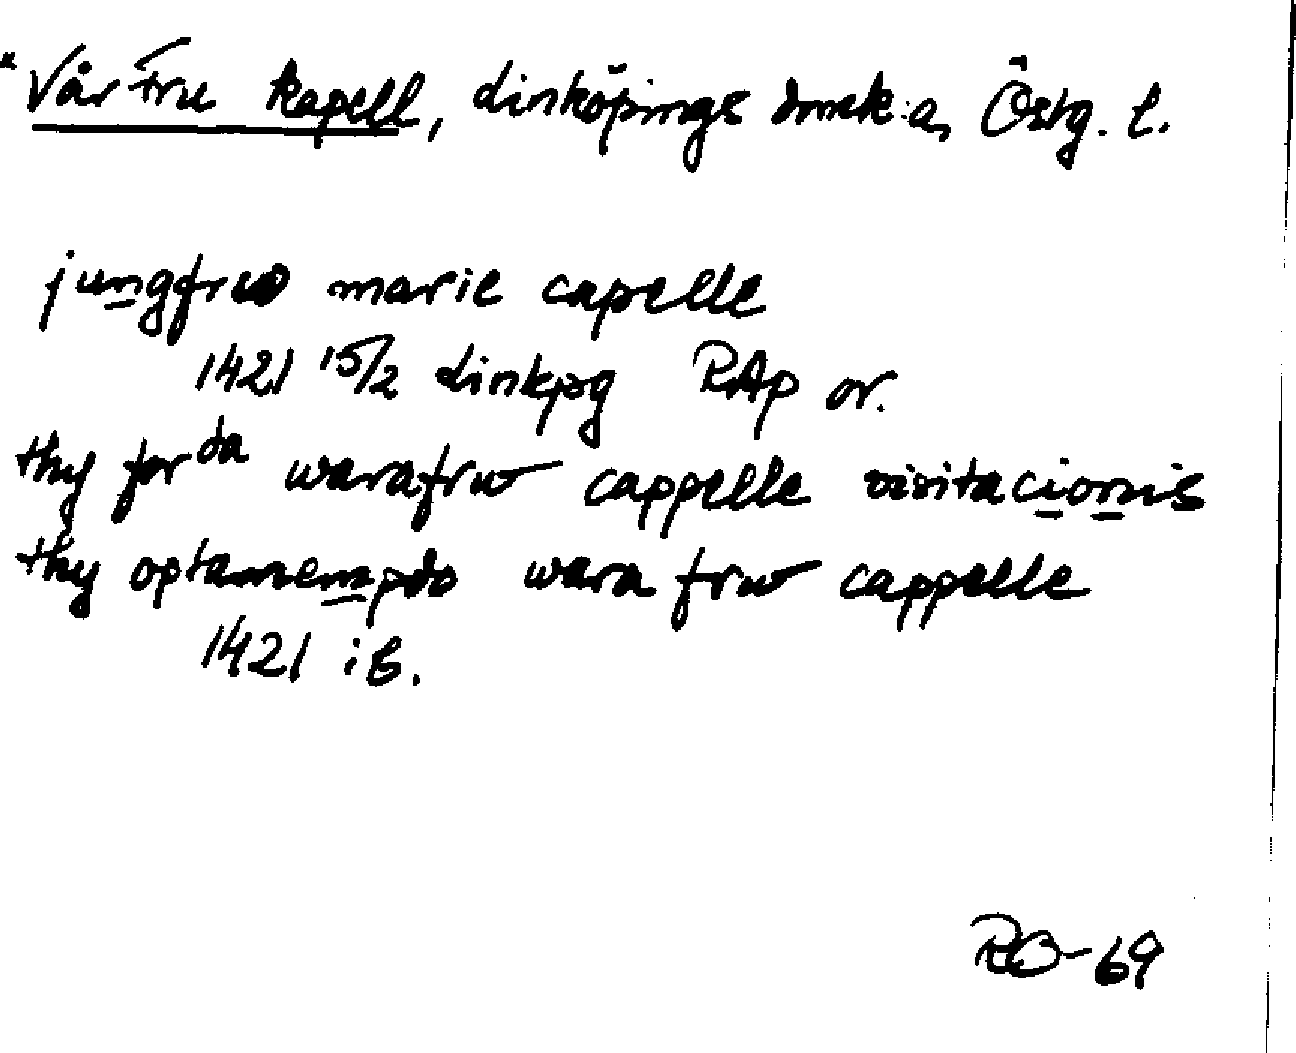 "Vår Fru kapell, Linköpings domk:a, Östg. l.
jungfrw marie capelle
1421 15/2 Linkpg RAp or.
thy for da warafrw cappelle visitacionis
thy wara frw cappelle
1421 ib.
RO-69